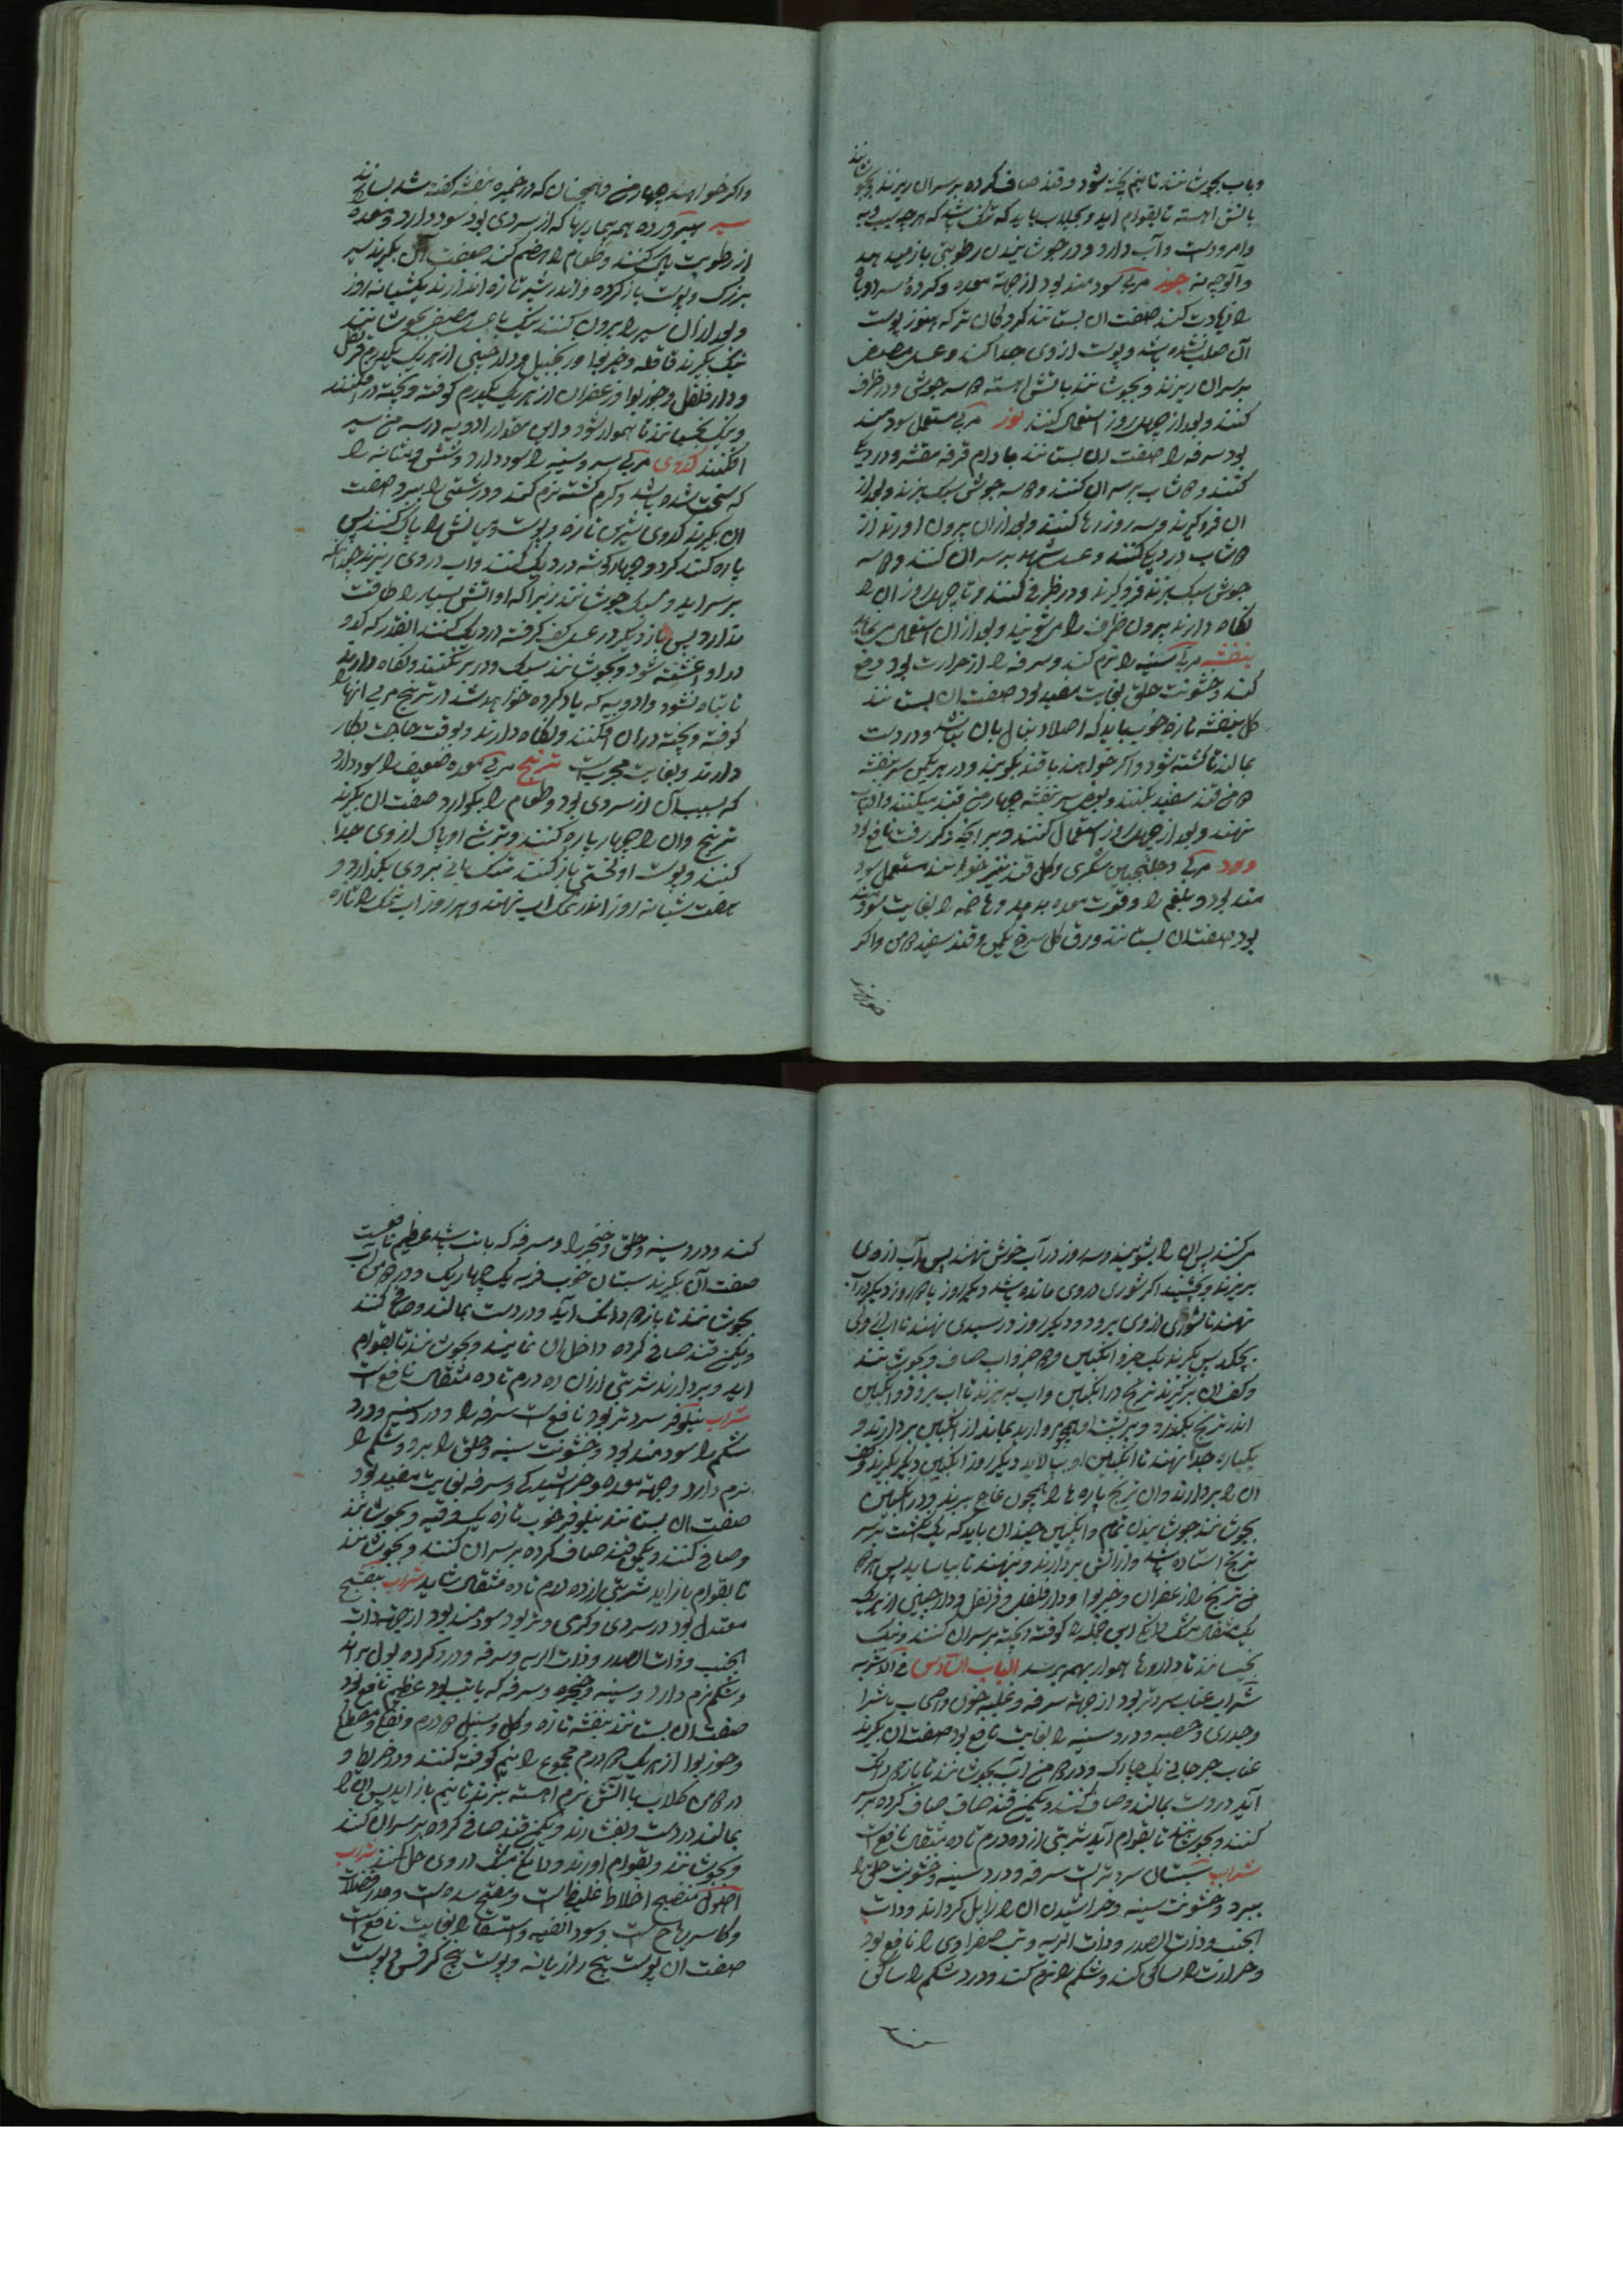 و باب بجوشانند تا نیم پخته شود و قند صاف کرده بر سر ان ریزند و بجوشانند
باتش اهسته تا بقوام اید و بجلاب باید که هر چه سیب و به
و امرودست و آب دارد و در جوشانیدن رطوبتی باز میدهد
و آلوچه نه جوز مربی سودمند بود از جهة معده و کرده سرد و باه
را زیادت کند صفت ان بستانند کردکان تر که هنوز پوست
آن صلب نشده باشد و پوست از وی جدا کنند و عسل مصفی
بر سر ان ریزند و بجوشانند باتش اهسته سه جوش و در ظرف
کنند و بعد از چهل روز استعمال کنند لوز مربی مستعمل سودمند
بود سرفه را صفت ان بستانند بادام مقشر و در دیک
کنند و دوشاب بر سر ان کنند و دو سه جوش سبک بزند و بعد از
ان فروکیرند و سه روز رها کنند و بعد از ان بیرون اورند از
دوشاب در دیک کنند و عسل شهد بر سر ان کنند و دو سه
جوش سبک بزند فروکیرند و در ظرفی کنند و تا چهل روز ان را
نکاه دارند بیرون ظرف را می شویند و بعد از ان استعمال می نمایند
بنفشه مربی سینه را نرم کند و سرفه را از حرارت بود دفع
کند و خشونت حلق بغایت مفید بود صفت ان بستانند
کل بنفشه تازه خوب باید که اصلا دنبال با ان نباشد و در دست
بمالند تا کشته شود و اکر خواهند با قند بکوبند و در هر یکمن سیر بنفشه
دو من قند سفید بکنند و بعضی سیر بنفشه چهار من قند میکنند و در افتاب
نهند و بعد از چهل روز استعمال کنند
ورد مربی و جلنجبین سکری و کل قند نیز خوانند مستعمل سود
مند بود و بلغم را و قوت معده بدهد و هاضمه را بغایت سودمند
بود صفت ان بستانند ورق کل سرخ یکمن و قند سفید دو من و اکر
خواهند
و اکر خواهند چهار من و همچنان که در خمیره بنفشه کفته شد بسازند
سیر پرورده همه بیماریها که از سردی بود سود دارد و معده
از رطوبت پاک کند و طعام را هضم کند صفت آن بکیرند سیر
بزرک و پوست باز کرده و اندر شیر تازه اندازند یکشبانه روز
و بعد از آن سیر را برون کنند نیک با عسل مصفی بجوشانند
نیک بکیرند قاقله و خیربوا و زنجبیل و دارچینی از هر یک یکدرم قرنفل
و دارفلفل و جوزبوا و زعفران از هر یک یکدرم کوفته و بیخته در افکنند
و نیک بجنبانند تا هموار شود و این مقدار ادویه در سه من سیر
افکنند کدوی مربی سر و سینه را سود دارد و شش و مثانه را
که سخت شده باشد و کرم کشته نرم کند و درشتی را ببرد صفت
ان بکیرند کدوی شیرین تازه و پوست و میانش را پاک کنند پس
پاره کنند کرد و چهارکوشه در دیک کنند و اب در وی ریزند چندانکه
بر سر اید و سبک جوشانند زیرا که او اتش بسیار را طاقت
ندارد پس باز دیکر در عسل کف کرفته در دیک کنند انقدر که کدو
در او اغشته شود و بجوشانند سبک و در بر نکنند و نکاه دارند
تا تباه نشود و ادویه که یاد کرده خواهد شد در ترنج مربی انها را
کوفته و بیخته در ان افکنند و نکاه دارند و بوقت حاجت بکار
دارند و بغایت مجرب است ترنج مربی معده ضعیف را سود دارد
که بسبب آن از سردی بود و طعام را بکوارد صفت ان بکیرند
ترنج و ان را چهار پاره کنند و ترشی او پاک از وی جدا
کنند و پوست او لختی باز کنند تنک بروی بکذارد و
هفت شبانه روز اندر نمک اب نهند و هر روز اب نمک را تازه
می کنند پس ان را بشویند و سه روز در آب خوش نهند پس آب از وی
بریزند و بچشند اکر شوری در وی مانده باشد دیکر روز یا دو روز دیکر در آب
نهند تا شوری از وی برود و دیکر روز در سبدی نهند تا اب از وی
بچکد پس بکیرند یک جزو انکبین و دو جزو اب صاف و بجوشانند
و کف ان بر کیرند ترنج در انکبین و اب بپزند تا اب برود و انکبین
اندر ترنج بکذرد و بر پشت او همچو مروارید بماند از انکبین بردارند و
یکباره جدا نهند تا انکبین او بپالاید دیکر روز انکبین دیکر بکیرند و کف
ان را بردارند و ان ترنج پاره ها را همچون عاج ببرند و در انکبین
بجوشانند جوشیدن تمام و انکبین چندان باید که یک انکشت بر سر
ترنج استاده باشد و از اتش بردارند و بنهند تا بیاساید پس هر
من ترنج را زعفران و خیربوا و دارفلفل و قرنفل و دارچینی از هر یک
یک مثقال مشک دانکی این جمله را کوفته و بیخته بر سر ان کنند و نیک
بجنبانند تا داروها هموار بهمه برسد الباب السادس فی الاشربه
شراب عناب سرد و تر بود از جهة سرفه و غلبه خون و اصحاب ماشرا
و جدری و حصبه و درد سینه را بغایت نافع بود صفت ان بکیرند
عناب جرجانی یک چارک و در دو من آب بجوشانند تا باز دانک
آید در دست بمالند و صاف کنند و یکمن قند صاف کرده بر سر
کنند و بجوشانند تا بقوام آید شربتی از ده درم تا ده مثقال نافع است
شراب سپستان سرد و تر است سرفه و درد سینه و خشونت حلق را
ببرد و خشونت سینه و خراشیدن ان را زایل کرداند و ذات
الجنب و ذات الصدر و ذات الریه و تب صفراوی را نافع بود
و حرارت را ساکن کند و شکم را نرم کند و درد شکم را ساکن
کند و درد سینه و حلق و حنجره را و سرفه که با تب باشد عظیم نافع است
صفت آن بکیرند سپستان خوب فربه یک چهاریک و در دو من آب
بجوشانند تا باز دانک آید و در دست بمالند و صافی کنند
و یکمن قند صافی کرده داخل ان نمایند و بجوشانند تا بقوام
اید و بردارند شربتی از ان ده درم تا ده مثقال نافع است
شراب نیلوفر سرد و تر بود نافع است سرفه را و درد سر و درد
شکم را سودمند بود و خشونت سینه و حلق را ببرد و شکم را
نرم دارد و جهة معده و خراشیدکی و سرفه بغایت مفید بود
صفت ان بستانند نیلوفر خوب تازه یک وقیه و بجوشانند
و صافی کنند و یکمن قند صاف کرده بر سر ان کنند و بجوشانند
تا بقوام باز اید شربتی از ده درم تا ده مثقال شاید شراب بنفسج
معتدل بود در سردی و کرمی و تر بود سودمند بود از جهة ذات
الجنب و ذات الصدر و ذات الریه و سرفه و درد کرده بول براند
و شکم نرم دارد و سینه و حنجره و سرفه که با تب بود عظیم نافع بود
صفت ان بستانند بنفشه تازه و کل و سنبل درم و مصطکی
و جوزبوا از هر یک دو درم مجموع را نیم کوفته کنند و در خریطه و
در دو من کلاب با آتش نرم اهسته بپزند تا بنیم باز اید پس ان را
بمالند در دست و بفشارند و یکمن قند صافی کرده بر سر ان کنند
و بجوشانند و بقوام اورند و دانک مشک در وی حل کنند شراب
اصول منضج اخلاط غلیظ است و مفتح سده است و مدر فضلات
و کاسر ریاح است و سوء القنیه و استسقا را بغایت نافع است
صفت ان پوست بیخ رازیانه و پوست بیخ کرفس و پوست